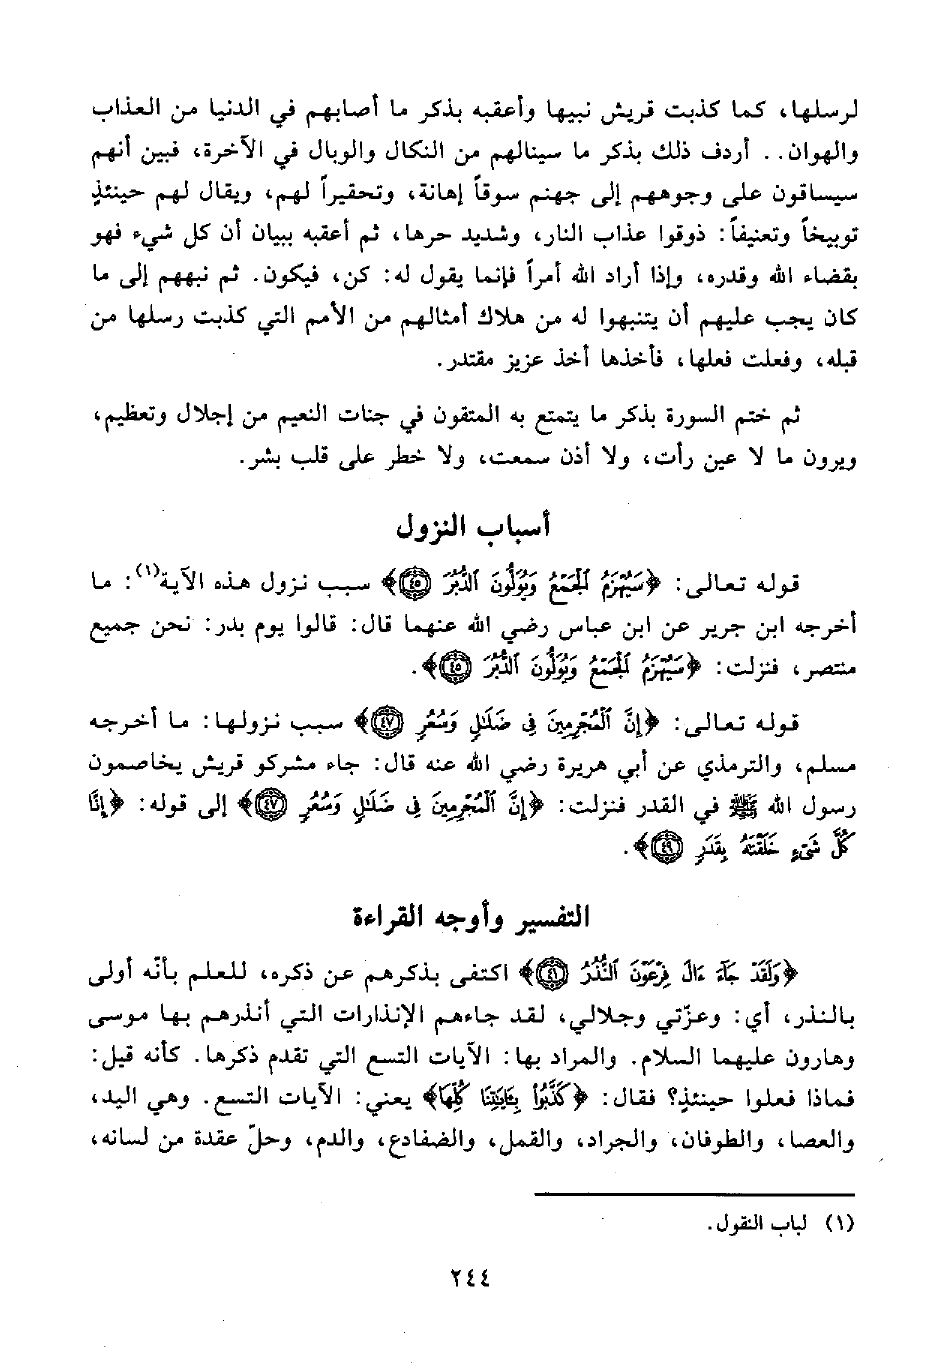 لرسلها، كما كذبت قريش نبيها وأعقبه بذكر ما أصابهم في الدنيا من العذاب
والهوان.. أردف ذلك بذكر ما سينالهم من النكال والوبال في الآخرة، فبين أنهم
سيساقون على وجوههم إلى جهنم سوقاً إهانة، وتحقيراً لهم، ويقال لهم حينئذٍ
توبيخاً وتعنيفاً: ذوقوا عذاب النار، وشديد حرها، ثم أعقبه ببيان أن كل شيء فهو
بقضاء الله وقدره، وإذا أراد الله أمراً فإنما يقول له: كن، فيكون. ثم نبههم إلى ما
كان يجب عليهم أن يتنبهوا له من هلاك أمثالهم من الأمم التي كذبت رسلها من
قبله، وفعلت فعلها، فأخذها أخذ عزيز مقتدر.
ثم ختم السورة بذكر ما يتمتع به المتقون في جنات النعيم من إجلال وتعظيم،
ويرون ما لا عين رأت، ولا أذن سمعت، ولا خطر على قلب بشر.
أسباب النزول
قوله تعالى: ﴿سَيُهْزَمُ ٱلْجَمْعُ وَيُوَلُّونَ ٱلدُّبُرَ ٤٥﴾ سبب نزول هذه الآية(١): ما
أخرجه ابن جرير عن ابن عباس رضي الله عنهما قال: قالوا يوم بدر: نحن جميع
منتصر، فنزلت: ﴿سَيُهْزَمُ ٱلْجَمْعُ وَيُوَلُّونَ ٱلدُّبُرَ ٤٥﴾.
قوله تعالى: ﴿إِنَّ ٱلْمُجْرِمِينَ فِى ضَلَٰلٍ وَسُعُرٍ ٤٧﴾ سبب نزولها: ما أخرجه
مسلم، والترمذي عن أبي هريرة رضي الله عنه قال: جاء مشركو قريش يخاصمون
رسول الله ﷺ في القدر فنزلت: ﴿إِنَّ ٱلْمُجْرِمِينَ فِى ضَلَٰلٍ وَسُعُرٍ ٤٧﴾ إلى قوله: ﴿إِنَّا
كُلَّ شَىْءٍ خَلَقْنَٰهُ بِقَدَرٍ ٤٩﴾.
التفسير وأوجه القراءة
﴿وَلَقَدْ جَآءَ ءَالَ فِرْعَوْنَ ٱلنُّذُرُ ٤١﴾ اكتفى بذكرهم عن ذكره، للعلم بأنّه أولى
بالنذر، أي: وعزّتي وجلالي، لقد جاءهم الإنذارات التي أنذرهم بها موسى
وهارون عليهما السلام. والمراد بها: الآيات التسع التي تقدم ذكرها. كأنه قيل:
فماذا فعلوا حينئذٍ؟ فقال: ﴿كَذَّبُوا۟ بِـَٔايَٰتِنَا كُلِّهَا﴾ يعني: الآيات التسع. وهي اليد،
والعصا، والطوفان، والجراد، والقمل، والضفادع، والدم، وحلّ عقدة من لسانه،
(١) لباب النقول.
٢٤٤